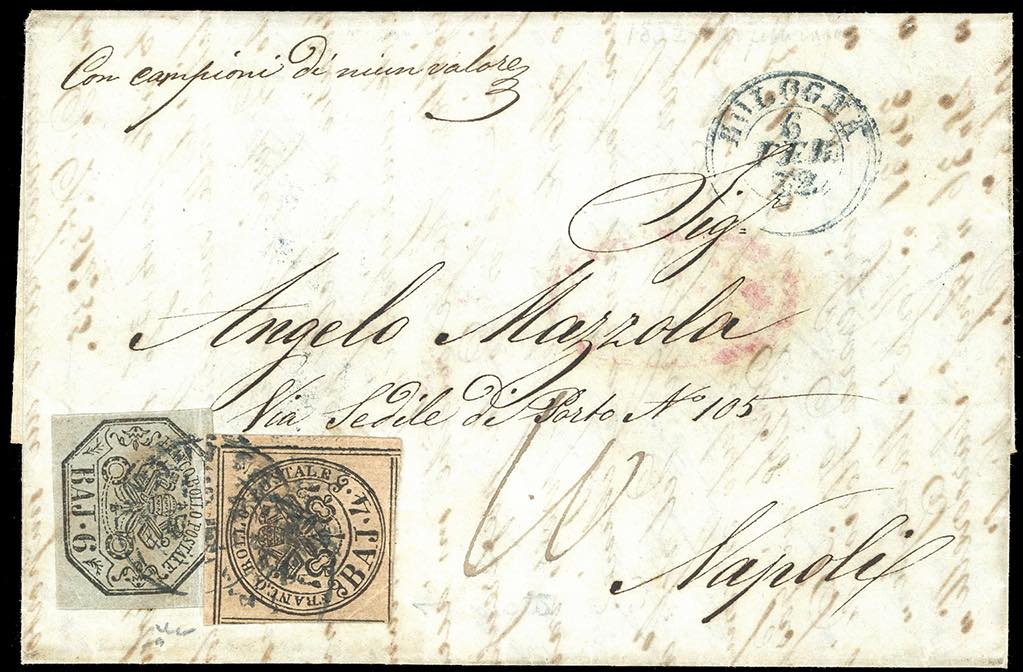 Con campioni di niun valore
BOLOGNA
6
FEB
Sig.r
Angelo Mazzola
Via Sedile di Porto No 105
Napoli
FRANCO BOLLO POSTALE
BAJ·6
FRANCO BOLLO POSTALE
BAJ